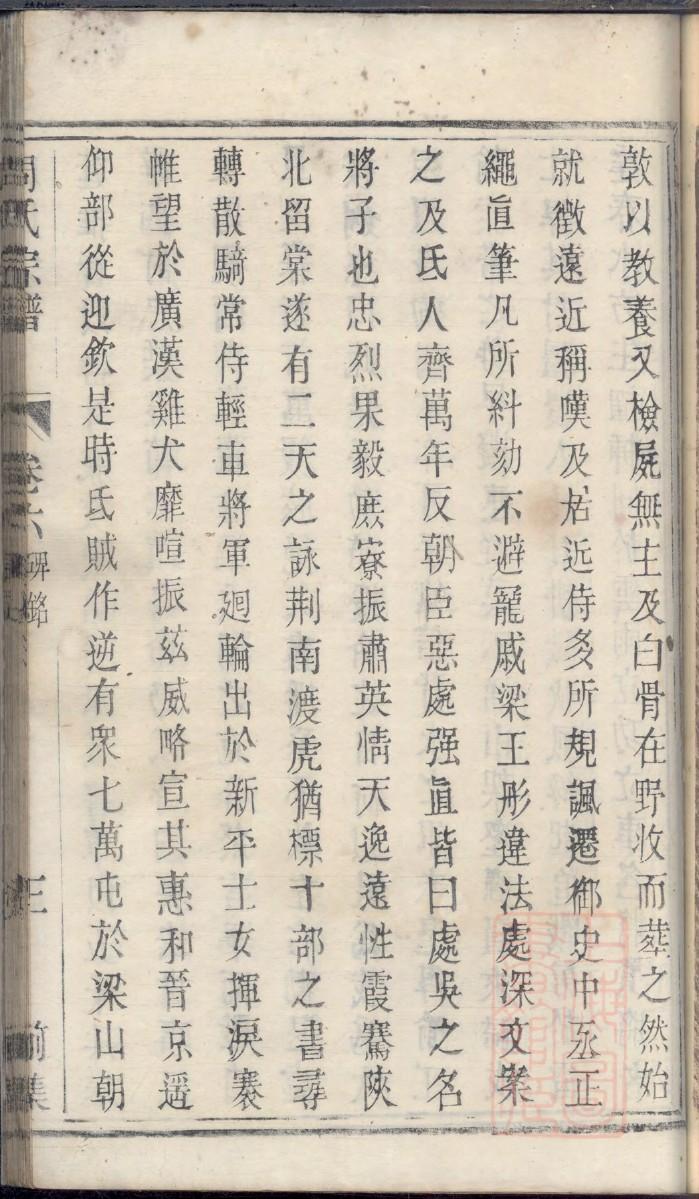 敦以教養又檢屍無主及白骨在野收而葬之然始
就徵遠近稱嘆及居近侍多所規諷遷御史中丞正
繩直筆凡所糾劾不避寵戚梁王彤違法處深文案
之及氐人齊萬年反朝臣惡處强直皆曰處吳之名
將子也忠烈果毅庶寮振肅英情天逸遠性霞騫陝
北留棠遂有二天之詠荆南渡虎猶標十部之書尋
轉散騎常侍輕車將軍廻輪出於新平士女揮淚褰
帷望於廣漢雞犬靡喧振茲威略宣其惠和晉京遥
仰部從迎欽是時氐賊作逆有眾七萬屯於梁山朝
周氏宗譜 卷六 碑銘 三 前集